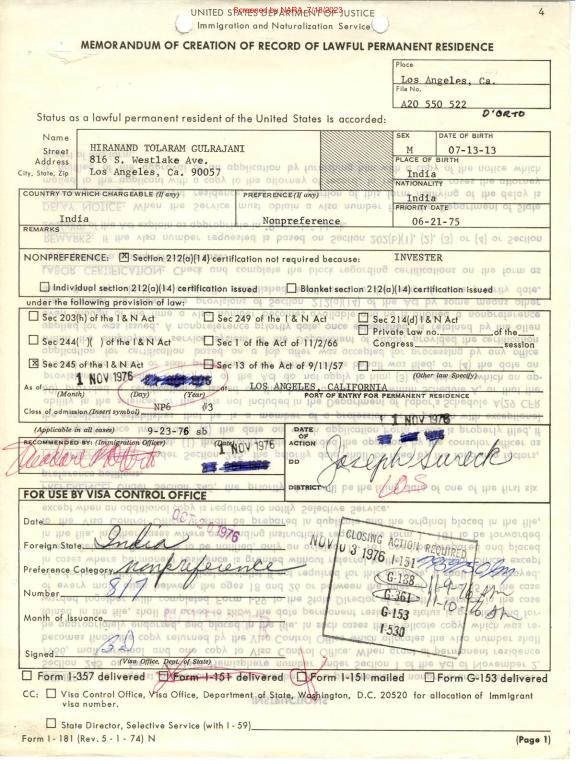 Screened by NARA, 7/18/2023
4
UNITED STATES DEPARTMENT OF JUSTICE
Immigration and Naturalization Service
MEMORANDUM OF CREATION OF RECORD OF LAWFUL PERMANENT RESIDENCE
Place
Los Angeles, Ca.
File No.
A20 550 522
D'ORTO
Status as a lawful permanent resident of the United States is accorded:
Name
Street Address
City, State, Zip
HIRANAND TOLARAM GULRAJANI
816 S. Westlake Ave.
Los Angeles, Ca. 90057
SEX
M
DATE OF BIRTH
07-13-13
PLACE OF BIRTH
India
NATIONALITY
India
COUNTRY TO WHICH CHARGEABLE (If any)
India
PREFERENCE (If any)
Nonpreference
PRIORITY DATE
06-21-75
REMARKS
NONPREFERENCE: X Section 212(a)(14) certification not required because: INVESTER
Individual section 212(a)(14) certification issued Blanket section 212(a)(14) certification issued
under the following provision of law:
Sec 203(h) of the I & N Act Sec 249 of the I & N Act Sec 214(d) I & N Act
Private Law no. of the
Sec 244( )( ) of the I & N Act Sec 1 of the Act of 11/2/66 Congress session
X Sec 245 of the I & N Act Sec 13 of the Act of 9/11/57
(Other law Specify)
As of 1 NOV 1976 at LOS ANGELES, CALIFORNIA
(Month) (Day) (Year) PORT OF ENTRY FOR PERMANENT RESIDENCE
Class of admission (Insert symbol) NP6 #3
(Applicable in all cases) 9-23-76 sb
RECOMMENDED BY: (Immigration Officer) (Date)
1 NOV 1976
DATE OF ACTION
1 NOV 1976
DD
Joseph Sureck
DISTRICT LOS
FOR USE BY VISA CONTROL OFFICE
Date OCT 1976
Foreign State India
Preference Category nonpreference
Number 817
Month of Issuance
Signed
(Visa Office, Dept. of State)
CLOSING ACTION REQUIRED
NOV 03 1976 I-151
G-188
G-361
G-153
I-530
Form I-357 delivered Form I-151 delivered Form I-151 mailed Form G-153 delivered
CC: Visa Control Office, Visa Office, Department of State, Washington, D.C. 20520 for allocation of Immigrant
visa number.
State Director, Selective Service (with I-59)
Form I-181 (Rev. 5-1-74) N
(Page 1)